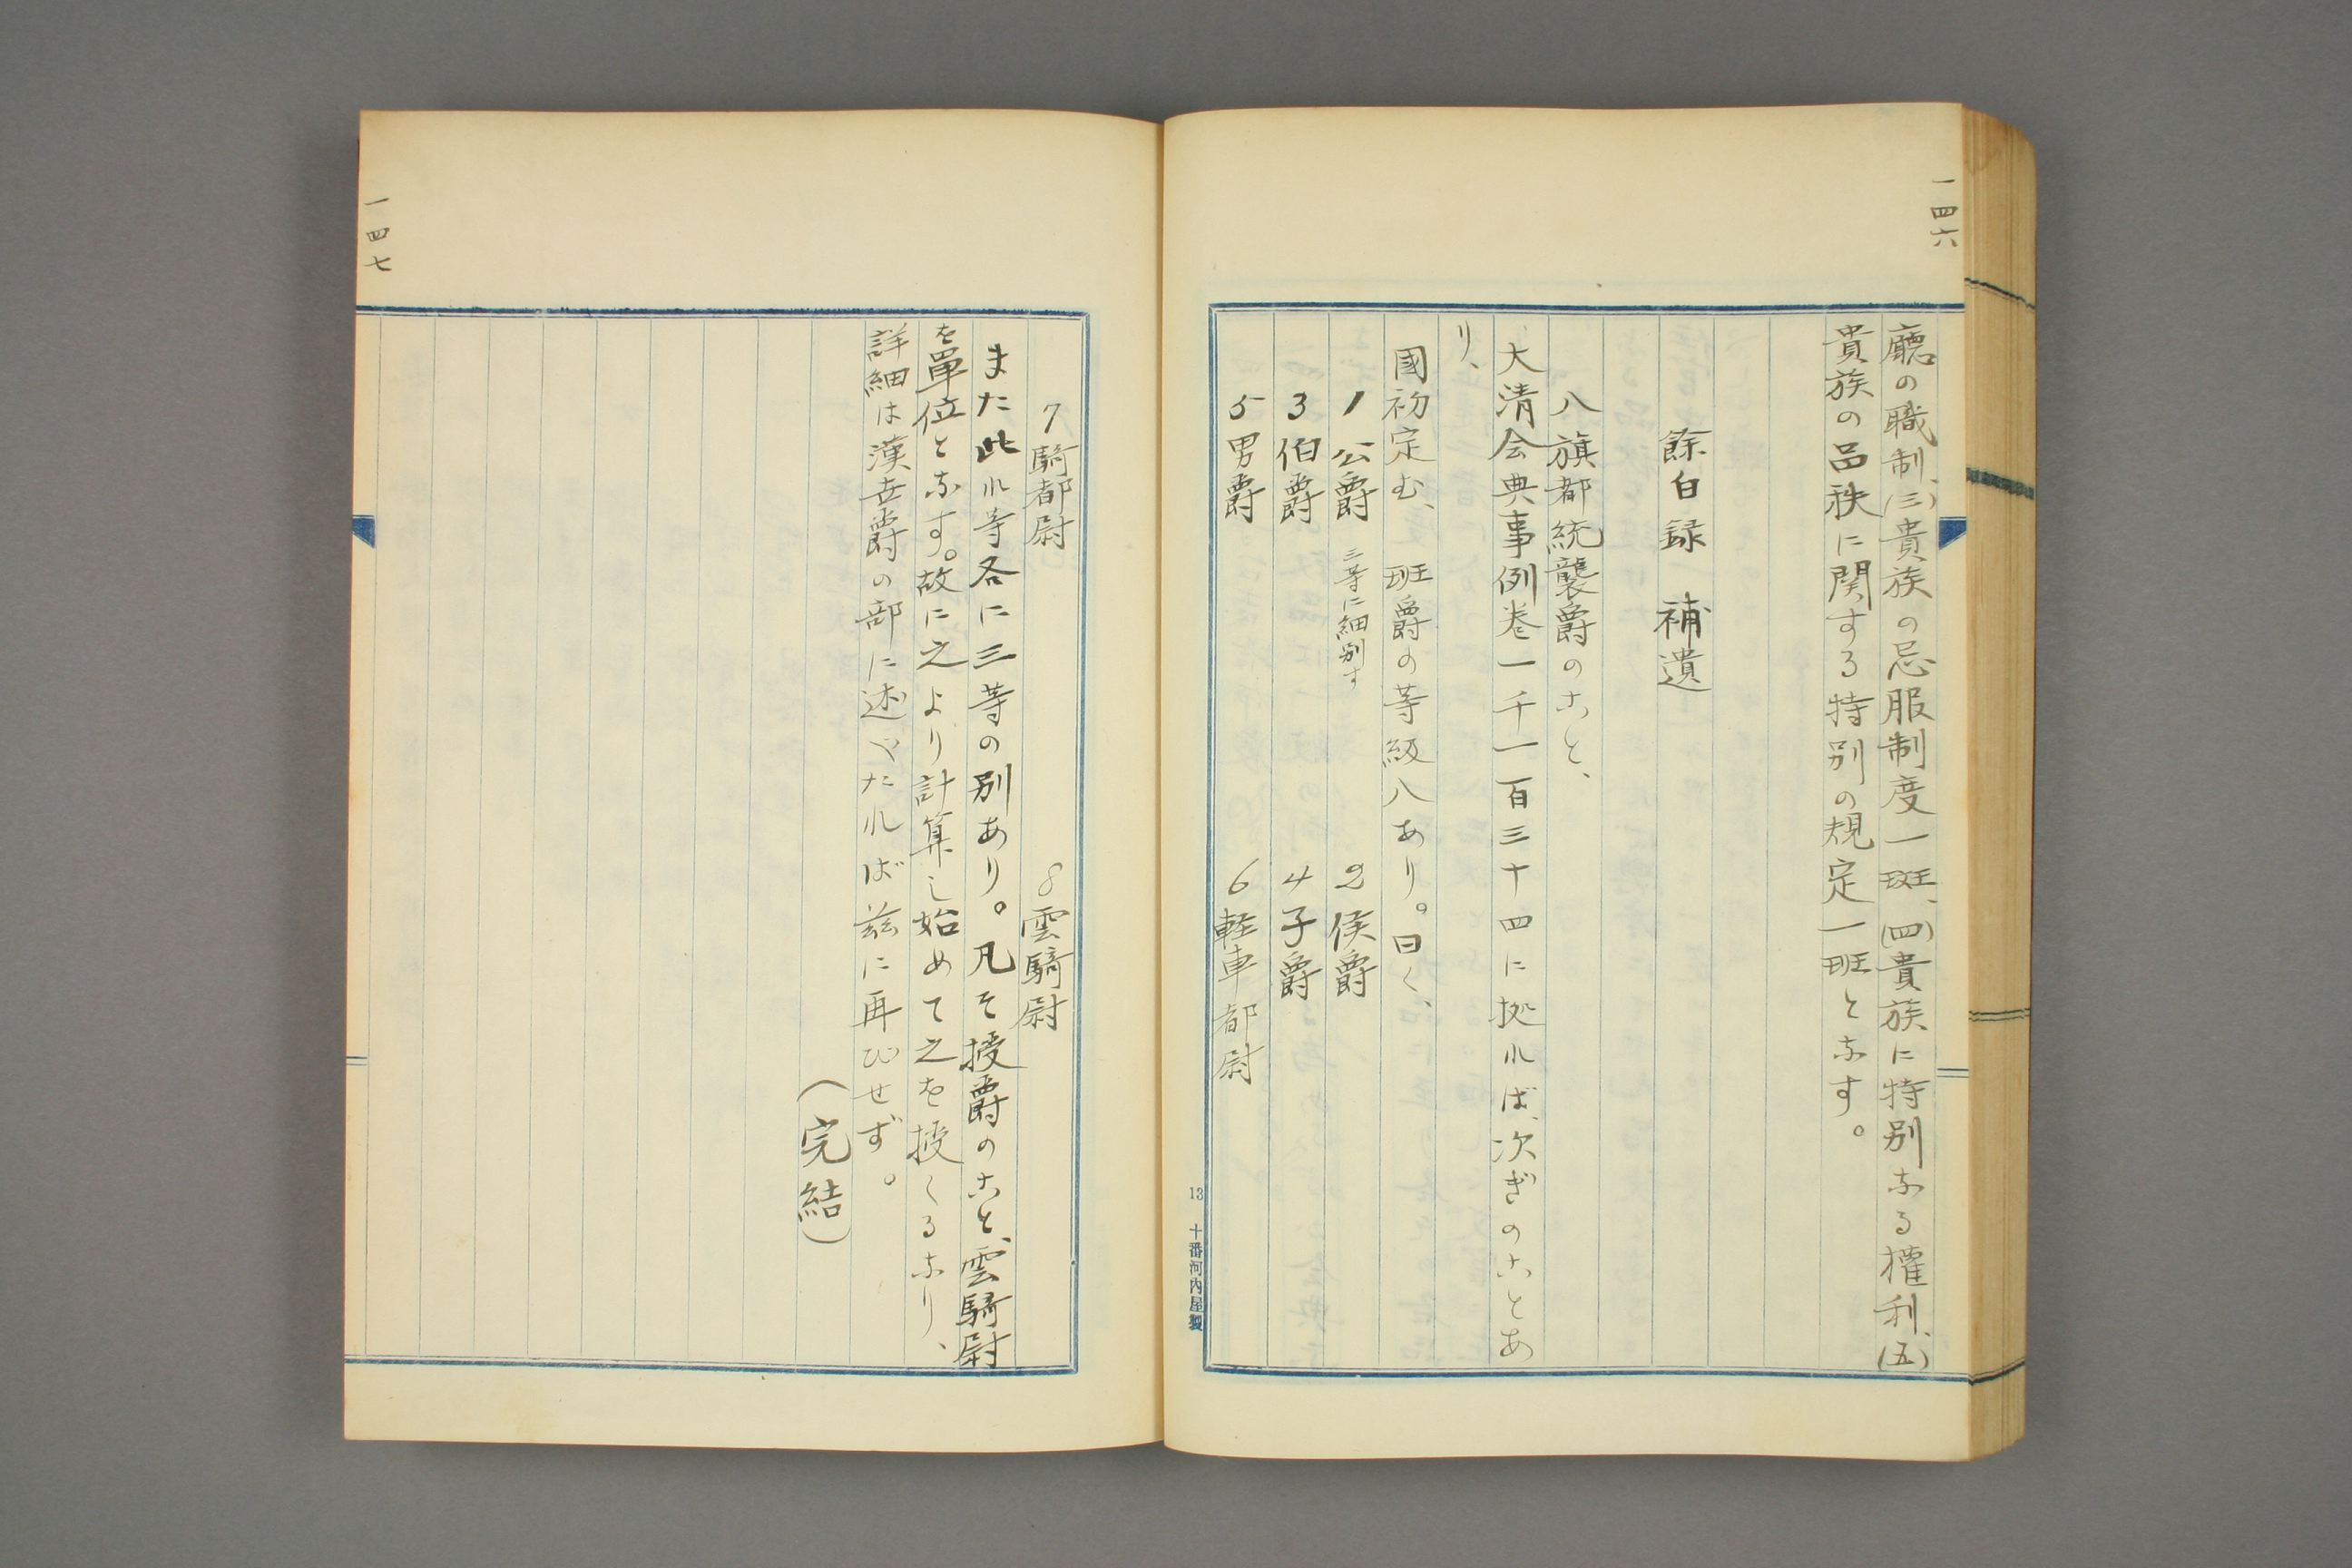 一四六
廳の職制、(三)貴族の忌服制度一斑、(四)貴族に特別なる権利、(五)
貴族の品秩に関する特別の規定一班となす。
餘白録　補遺
八旗都統襲爵のこと、
大清会典事例巻一千一百三十四に拠れば、次ぎのことあ
り、
國初定む、班爵の等級八あり。曰く、
1 公爵 三等に細別す　2 侯爵
3 伯爵　4 子爵
5 男爵　6 軽車都尉
13 十番河内屋製
7 騎都尉　8 雲騎尉
また此れ等各に三等の別あり。凡そ授爵のこと、雲騎尉
を單位となす。故に之より計算し始めて之を授くるなり、
詳細は漢世爵の部に述べたれば茲に再びせず。
(完結)
一四七